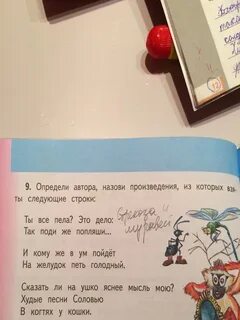 9. Определи автора, назови произведения, из которых взя-
ты следующие строки:
Ты все пела? Это дело: Стрекоза и
Так поди же попляши... муравей
И кому же в ум пойдёт
На желудок петь голодный.
Сказать ли на ушко яснее мысль мою?
Худые песни Соловью
В когтях у кошки.